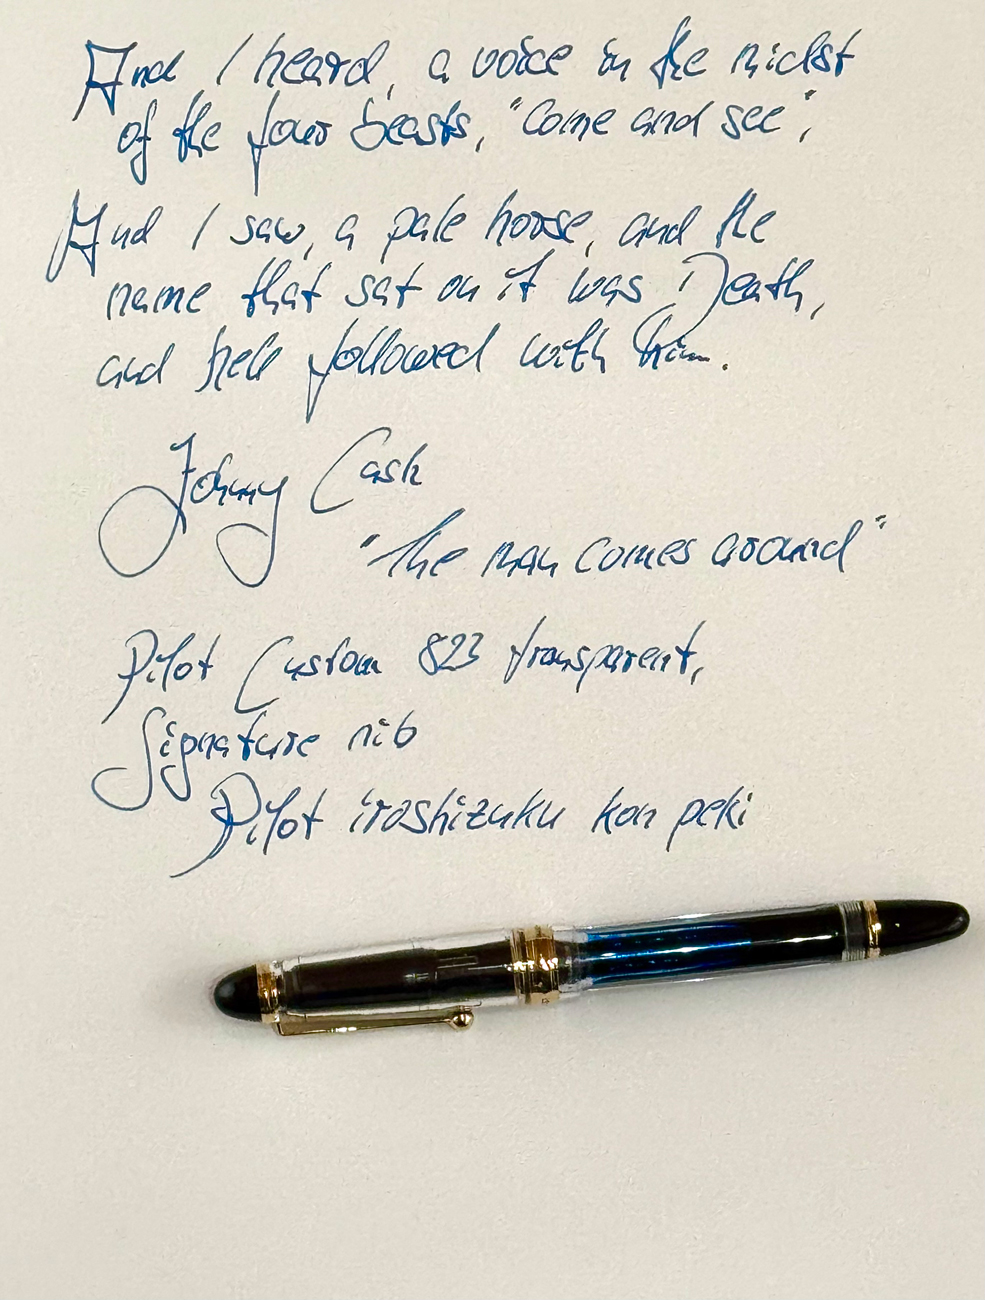 And I heard, a voice in the midst
of the four beasts, "Come and see",
And I saw, a pale horse, and the
name that sat on it was Death,
and hell followed with him.
Johnny Cash
"the man comes around"
Pilot Custom 823 transparent,
Signature nib
Pilot iroshizuku kon peki